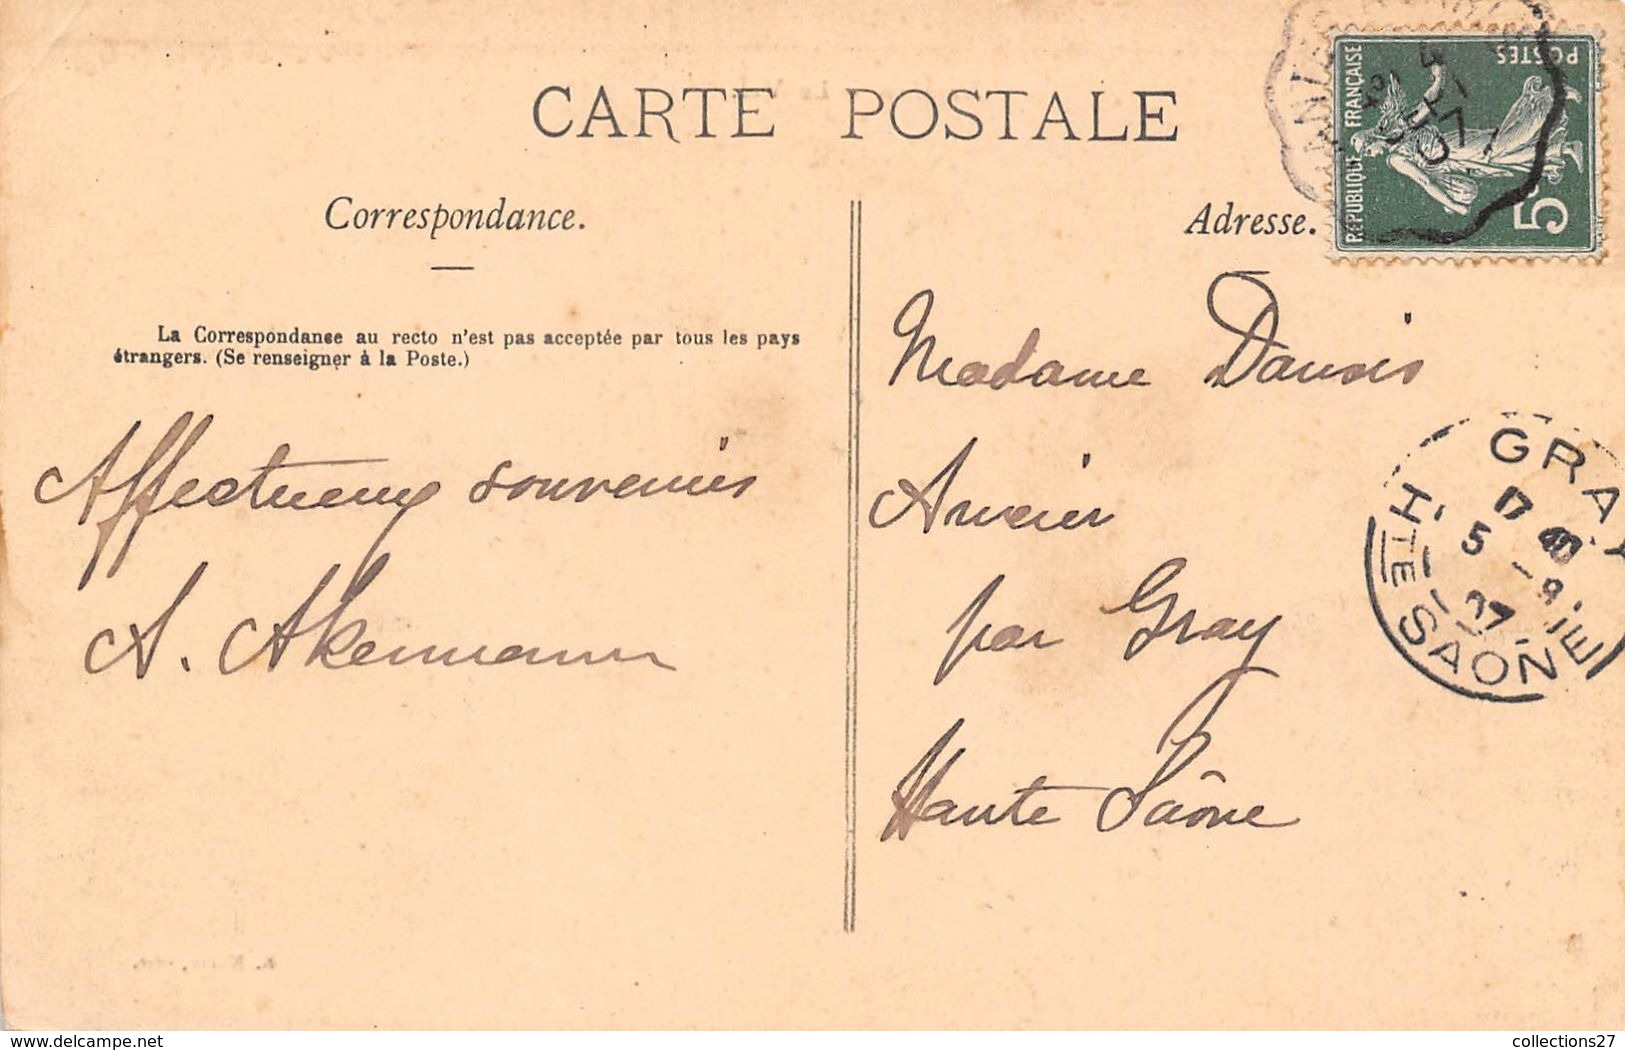 CARTE POSTALE
Correspondance.
Adresse.
La Correspondanse au recto n'est pas acceptée par tous les pays
étrangers. (Se renseigner à la Poste.)
Affectueux souvenirs
A. Akermann
Madame
par Gray
Haute Saône
REPUBLIQUE FRANÇAISE
POSTES
5
GRAY
17 40
5 -9
07
HTE SAONE
delcampe.net
collections27